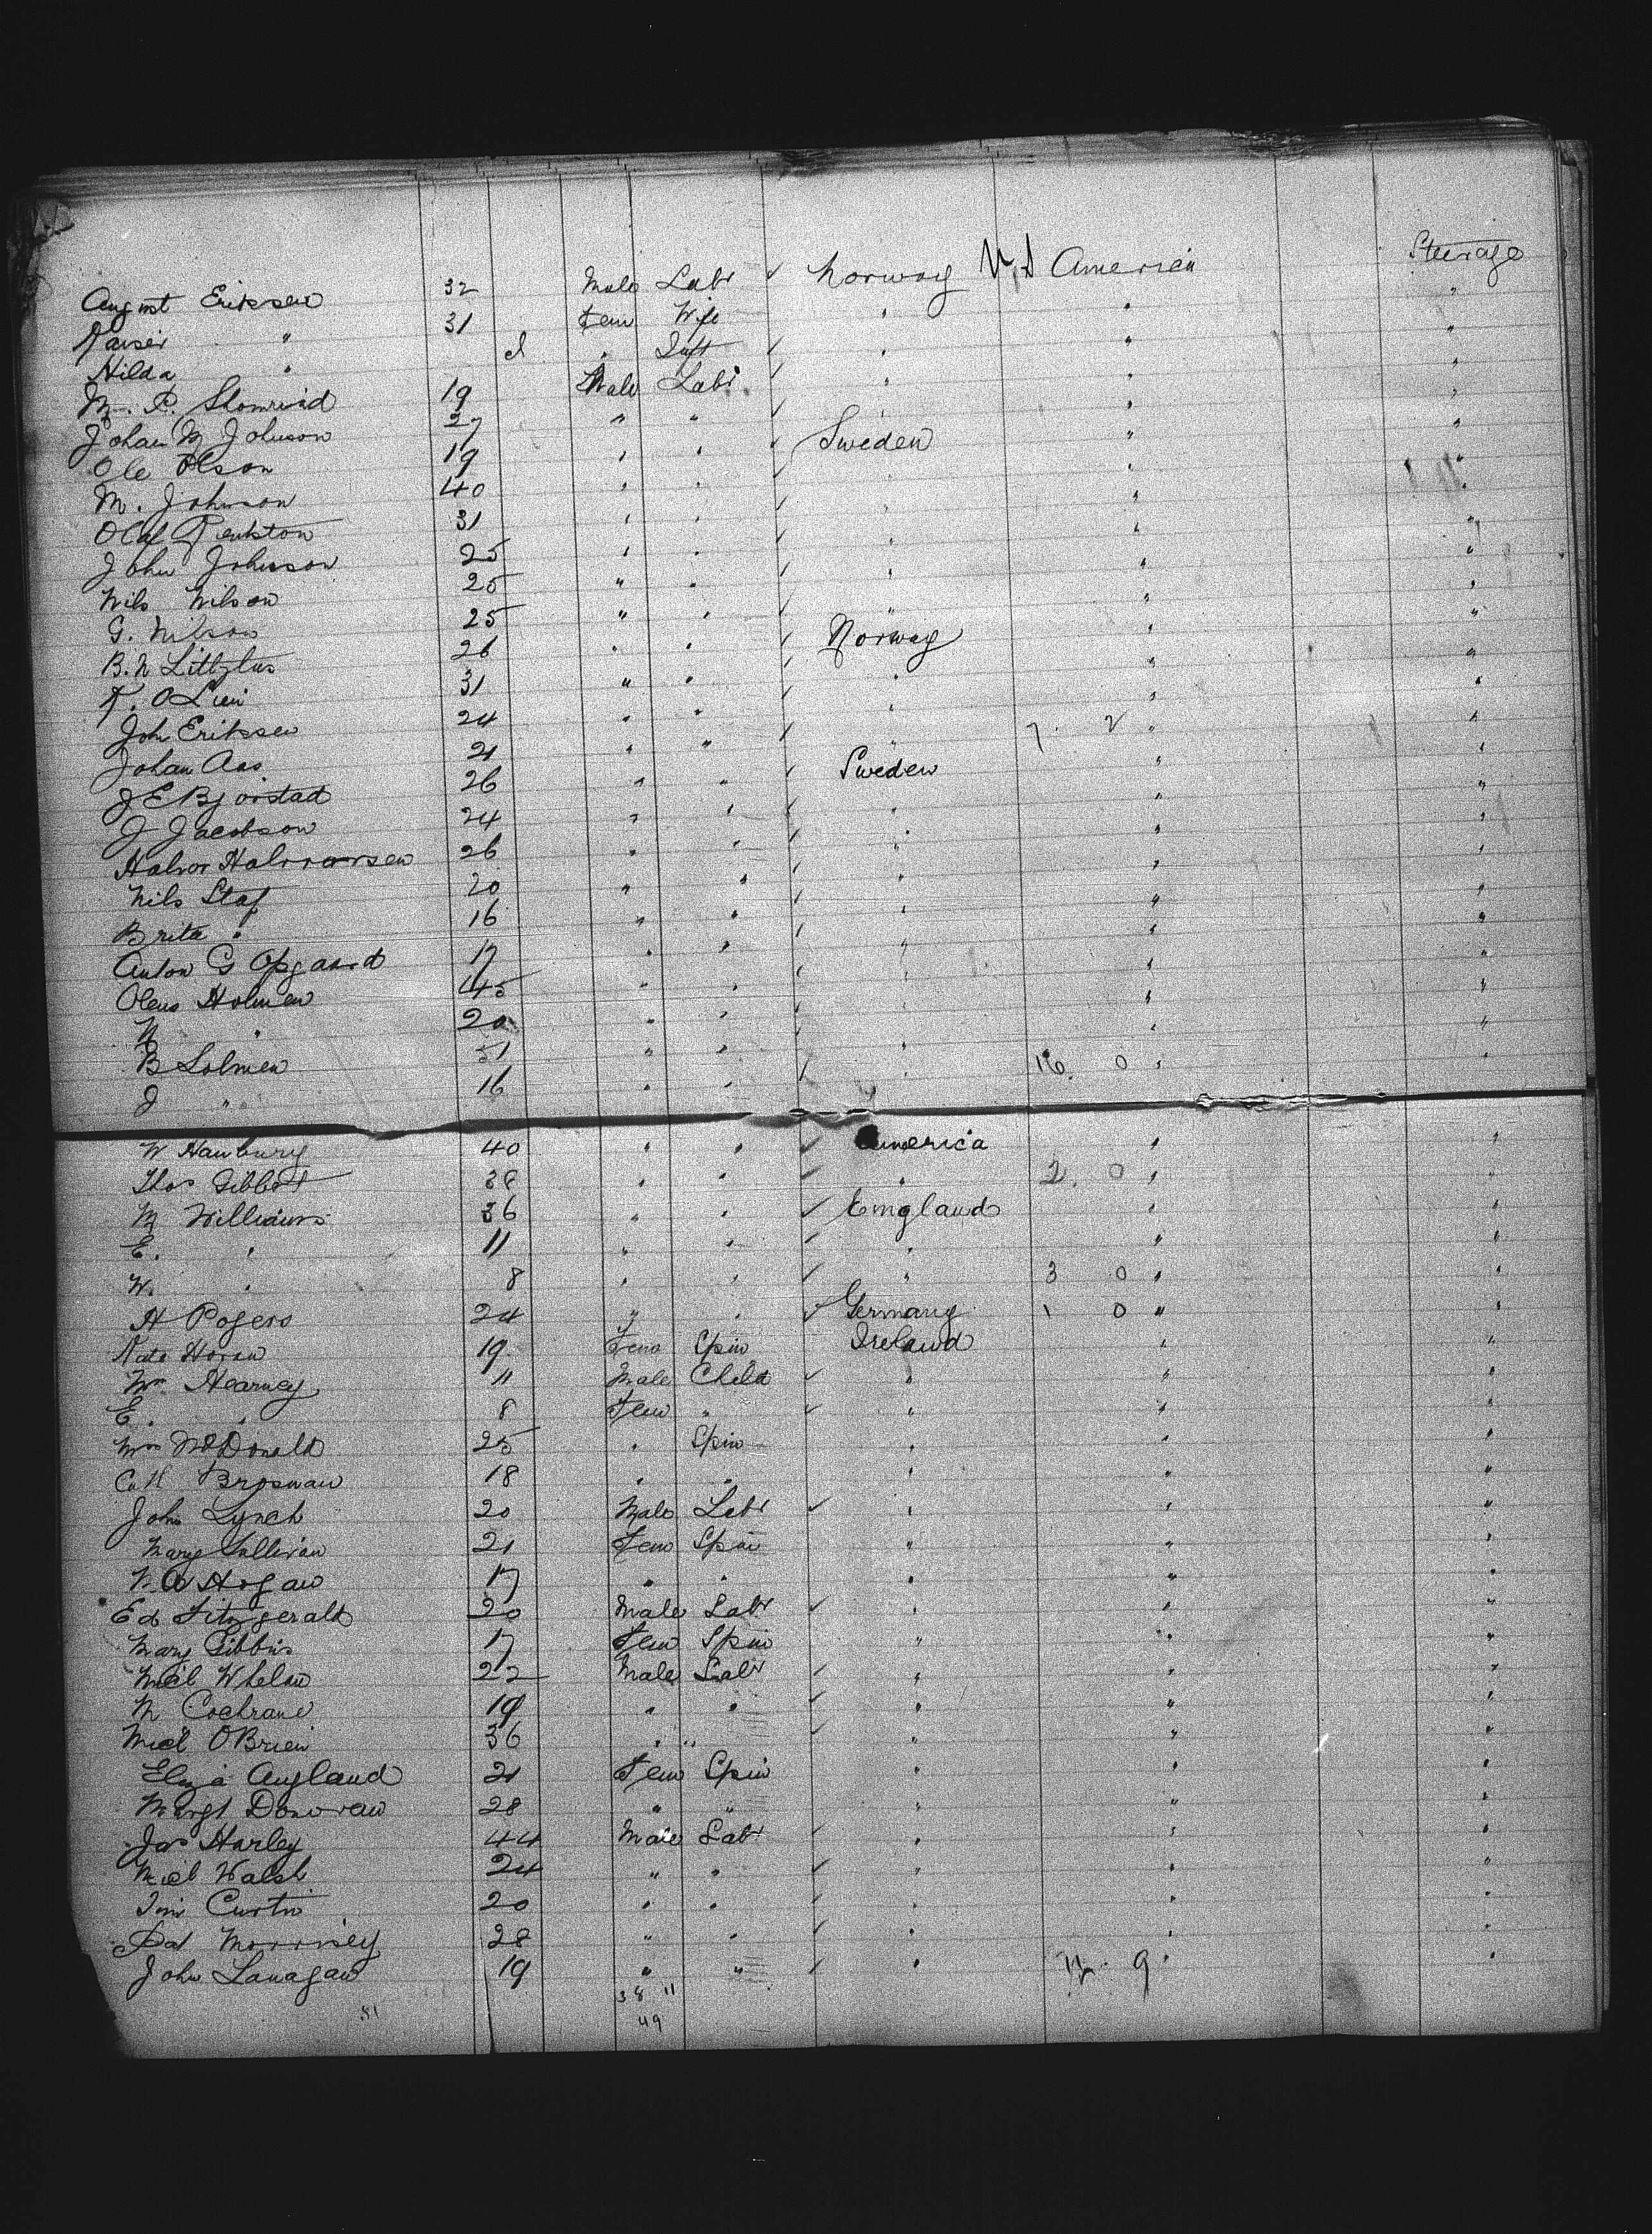 August Eriksen 32 Male Labr ✓ Norway U S America Steerage
Karsei " 31 Fem Wife " " "
Hilda " Inft " " "
M. P. 19 Male Labr " " "
Johan M Johnson 27 " " " " "
Ole Olson 19 " " Sweden " "
M. Johnson 40 " " " " "
Olaf 31 " " " " "
John Johnson 25 " " " " "
Nils Nilson 25 " " " " "
G. Nilson 25 " " " " "
B. N 26 " " Norway " "
K. O Lien 31 " " " " "
John Eriksen 24 " " " " "
Johan Aas 21 " " " 7. 2 " "
J E Bjorstad 26 " " Sweden " "
J Jacobson 24 " " " " "
Halvor Halvorsen 26 " " " " "
Nils Staf 20 " " " " "
Brita " 16 " " " " "
Anton G Opgaard 17 " " " " "
Olens Holmen 45 " " " " "
N " 20 " " " " "
B Solmen 51 " " " " "
J " 16 " " " 16. 0 " "
W Hanbury 40 " " ✓ America " "
Thos Gibbot 38 " " ✓ " 2. 0 " "
M Williams 36 " " ✓ England " "
E. " 11 " " ✓ " " "
W. " 8 " " ✓ " 3 0 " "
H Pogers 24 " " ✓ Germany 1 0 " "
Kate Horan 19 Fem Spin Ireland " "
Wm Hearney 11 Male Child ✓ " " "
E. " 8 Fem " ✓ " " "
Mrs McDonald 25 " Spin " " "
Cath Brosnan 18 " " " " "
John Lynch 20 Male Labr ✓ " " "
Mary Sullivan 21 Fem Spin " " "
Hogan 17 " " " " "
Ed Fitzgerald 20 Male Labr ✓ " " "
Mary Gibbins 17 Fem Spin " " "
Micl Whelan 22 Male Labr ✓ " " "
M Cochrane 19 " " ✓ " " "
Micl O'Brien 36 " " ✓ " " "
Eliza Angland 21 Fem Spin " " "
Margt Donovan 28 " " " " "
Jas Harley 44 Male Labr ✓ " " "
Micl Walsh 24 " " ✓ " " "
Tim Curtin 20 " " ✓ " " "
Pat Morrisey 28 " " ✓ " " "
John Lanagan 19 " " ✓ " 12. 9 " "
38 11
51 49